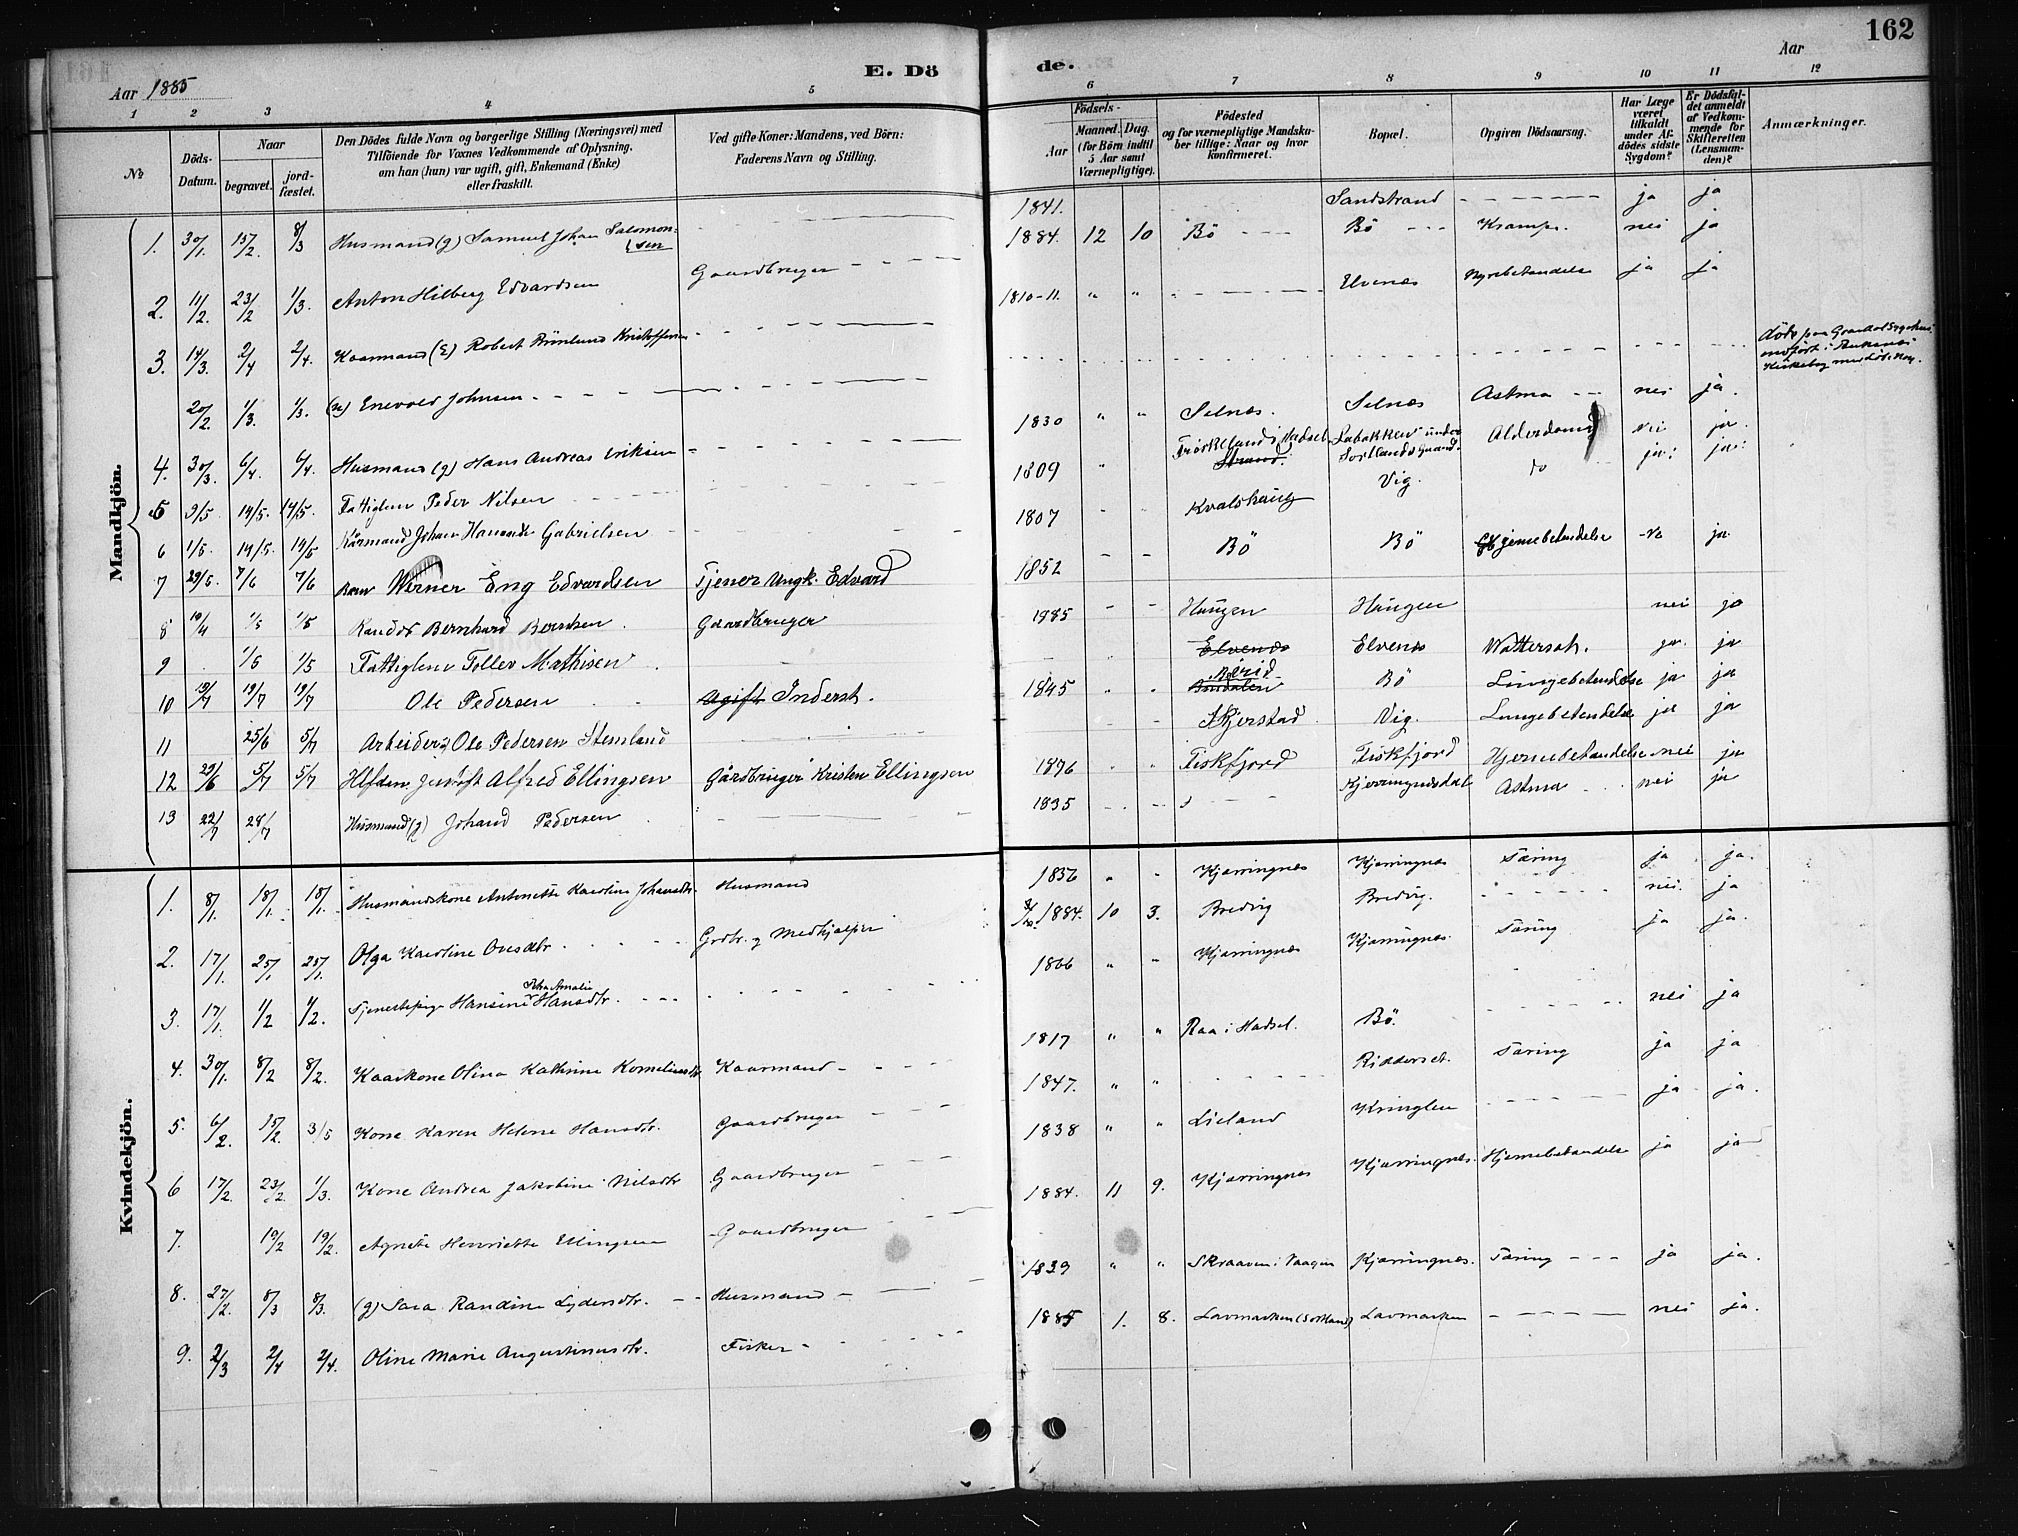 162
Aar 1885
E. Dö de.
Aar
1 2 3 4 5 6 7 8 9 10 11 12
No
Döds-Datum.
Naar
begravet.
jord-fæstet.
Den Dödes fulde Navn og borgerlige Stilling (Næringsvei) med
Tilföiende for Voxnes Vedkommende af Oplysning,
om han (hun) var ugift, gift, Enkemand (Enke)
eller fraskilt.
Ved gifte Koner: Mandens, ved Börn:
Faderens Navn og Stilling.
Födsels-
Aar
Maaned. Dag.
(for Börn indtil
5 Aar samt
Værnepligtige).
Födested
og for værnepligtige Mandska-
ber tillige: Naar og hvor
konfirmeret.
Bopæl.
Opgiven Dödsaarsag.
Har Læge
været
tilkaldt
under Af-
dödes sidste
Sygdom?
Er Dödsfal-
det anmeldt
af Vedkom-
mende for
Skifteretten
(Lensman-
den)?
Anmærkninger.
Mandkjön.
1. 30/1. 15/2. 8/3 Husmand (g) Samuel Johan Salomonsen 1841. Sandstrand ja ja
2. 11/2. 23/2 1/3. Anton Hilberg Edvardsen Gaardbruger 1884. 12 10 Bö Bö Krampe. nei ja
3. 14/3. 2/4 2/4. Kaarmand (E) Robert Brönlund Kristoffersen 1810-11. " " Elvenæs Nyrebetændelse ja ja
20/2. 1/3. 1/3. Enevold Johnsen död paa Sygehus
4. 30/3. 6/4. 6/4. Husmand (g) Hans Andreas Eriksen 1830 " " Selnæs. Selnæs Astma nei ja.
5 9/5 14/5. 14/5. Fattiglem Peder Nilsen 1809 " i Hadsel Strand. under Sortlands Alderdom nei ja
6 1/5. 14/5. 14/5 Kårmand Johan Gabrielsen 1807 Kvalshaug Vig. do ja ja
7 29/5. 7/6 7/6 Barn Werner Eng Edvardsen Tjener Ungk. Edvard 1852 Bö Bö Hjernebetændelse ja
8 10/4 1/5 1/5 Bernhard Berntsen Gaardbruger 1885 Haugen Haugen nei ja
9 1/5 1/5 Fattiglem Toller Mathisen Elvenæs Elvenæs Wattersot. ja. ja
10 19/7 19/7 19/7 Ole Pedersen Ugift Inderst. 1845 " " Bö Lungebetændelse ja ja
11 25/6 5/7 Arbeider Ole Pedersen Stemland Skjerstad Vig. Lungebetændelse ja ja
12 29/6 5/7 5/7 Alfred Ellingsen Gårdbruger Kristen Ellingsen 1876 Fiskfjord Fiskfjord Hjernebetændelse nei ja
13 22/7 28/7 Husmand (g) Johand Pedersen 1835 Kjerringnesdal Astma nei ja
Kvindekjön.
1. 8/1. 18/1. 18/1. Husmandskone Antonette Karoline Johansdtr. Husmand 1836 " " Kjærringnæs Kjærringnæs Tæring ja ja.
2. 17/1. 25/1 25/1. Olga Karoline Ovesdtr Grdbr. og Medhjælper 1884. 10 3. Bredvig Bredvig. nei. ja
3. 17/1. 1/2 1/2. Tjenestepige Hansine Petra Amalie Hansdtr. 1866 " " Kjærringnæs Kjærringnæs. Tæring ja ja.
4. 30/1. 8/2 8/2. Kaarkone Olina Kathrine Korneliusdtr Kaarmand 1817 " " Raa i Hadsel. Bö. nei ja
5. 6/2. 15/2. 3/5 Kone Karen Helene Hansdtr. Gaardbruger 1847. " " Ridderset. Tæring ja ja
6 17/2. 23/2. 1/3. Kone Andrea Jakobine Nilsdtr Gaardbruger 1838 " " Lieland Kringlen ja ja.
7. 19/2 19/2. Agnete Henriette Ellingsen Gaardbruger 1884. 11 9. Kjærringnæs Kjærringnæs. Hjernebetændelse ja ja
8. 27/2. 8/3 8/3. (g) Sara Randine Lydersdtr. Husmand 1839 " " Skraaven i Vaagen Kjærringnæs. Tæring ja ja.
9. 2/3 2/4 2/4. Oline Marie Augustinusdtr. Fisker 1885 1. 8. Lavmarken (Sortland) Lavmarken nei ja.